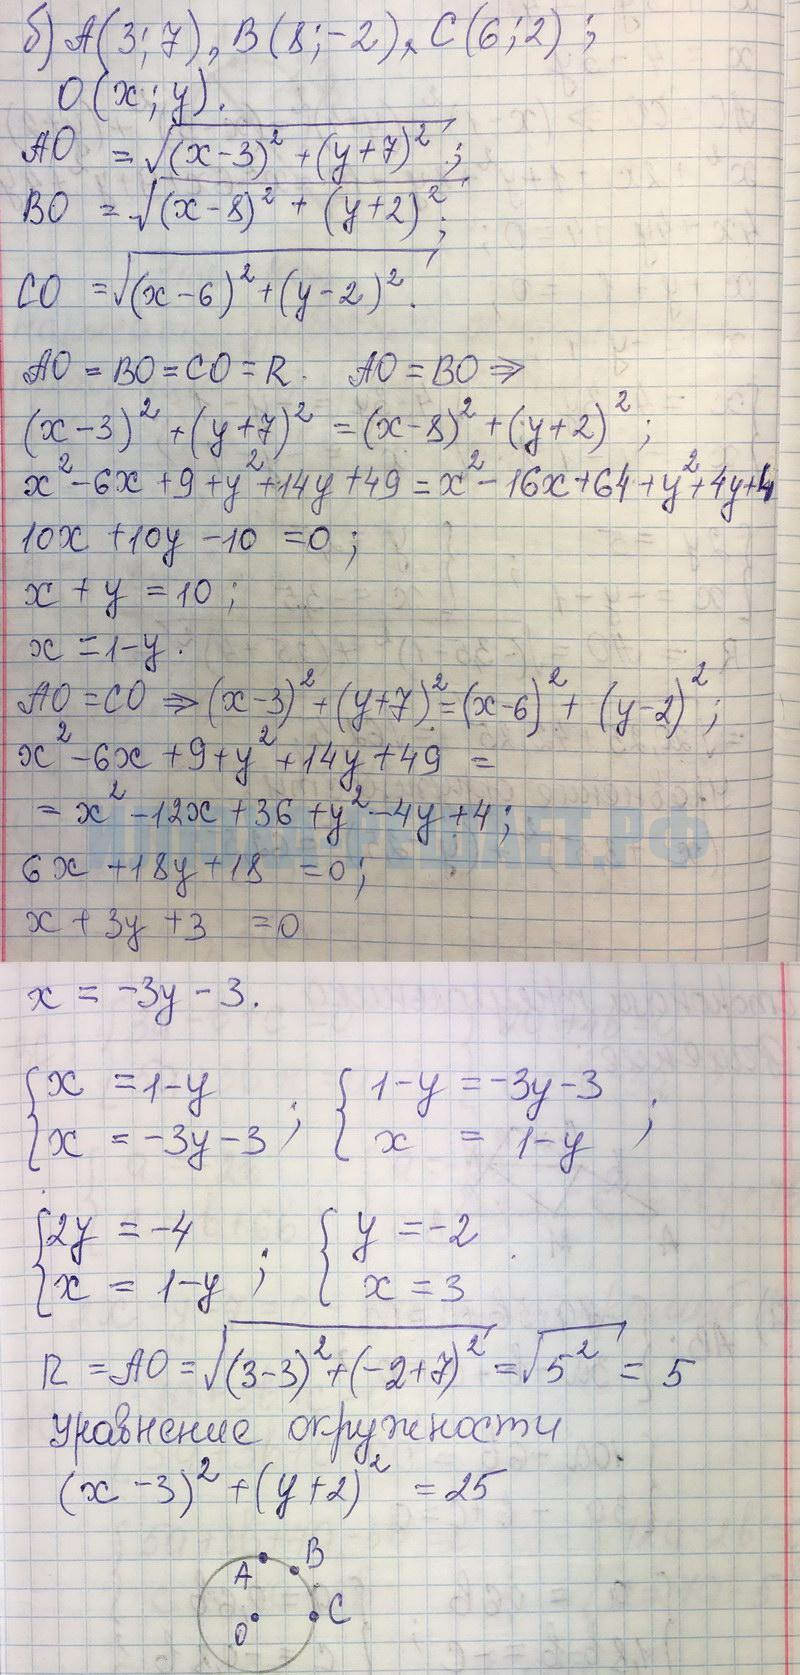 б) A(3; 7), B(8; -2), C(6; 2);
O(x; y).
AO = √(x-3)² + (y+7)²;
BO = √(x-8)² + (y+2)²;
CO = √(x-6)² + (y-2)².
AO = BO = CO = R. AO = BO ⇒
(x-3)² + (y+7)² = (x-8)² + (y+2)²;
x² - 6x + 9 + y² + 14y + 49 = x² - 16x + 64 + y² + 4y + 4
10x + 10y - 10 = 0;
x + y = 10;
x = 1 - y.
AO = CO ⇒ (x-3)² + (y+7)² = (x-6)² + (y-2)²;
x² - 6x + 9 + y² + 14y + 49 =
= x² - 12x + 36 + y² - 4y + 4;
6x + 18y + 18 = 0;
x + 3y + 3 = 0
x = -3y - 3.
{x = 1-y; {1-y = -3y-3;
{x = -3y-3 {x = 1-y
{2y = -4; {y = -2
{x = 1-y {x = 3
R = AO = √(3-3)² + (-2+7)² = √5² = 5
уравнение окружности
(x-3)² + (y+2)² = 25
A B
O C